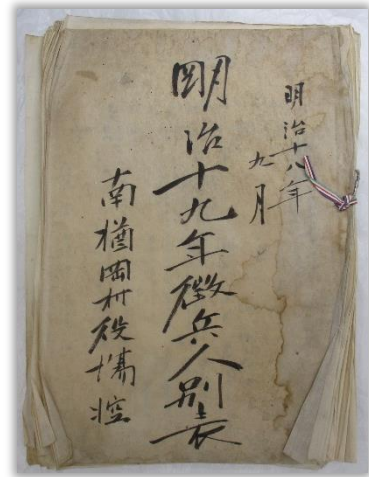 明治十八年
九月
明治十九年徴兵人別表
南楢岡村役場控